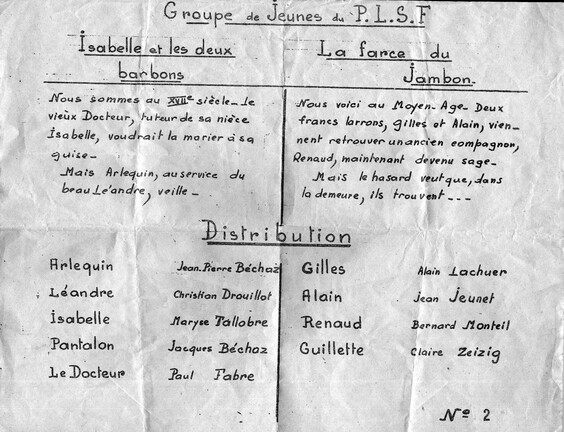 Groupe de Jeunes du P.L.S.F
Isabelle et les deux
barbons
Nous sommes au XVIIe siècle_ le
vieux Docteur, tuteur de sa nièce
Isabelle, voudrait la marier à sa
guise_
Mais Arlequin, au service du
beau Lé'andre, veille _
La farce du
Jambon.
Nous voici au Moyen-Age_ Deux
francs larrons, Gilles et Alain, vien-
nent retrouver un ancien compagnon,
Renaud, maintenant devenu sage_
Mais le hasard veut que, dans
la demeure, ils trouvent ---
Distribution
Arlequin Jean.Pierre Béchaz
Léandre Christian Drouillot
Isabelle Maryse Tallobre
Pantalon Jacques Béchaz
Le Docteur Paul Fabre
Gilles Alain Lachuer
Alain Jean Jeunet
Renaud Bernard Monteil
Guillette Claire Zeizig
No 2